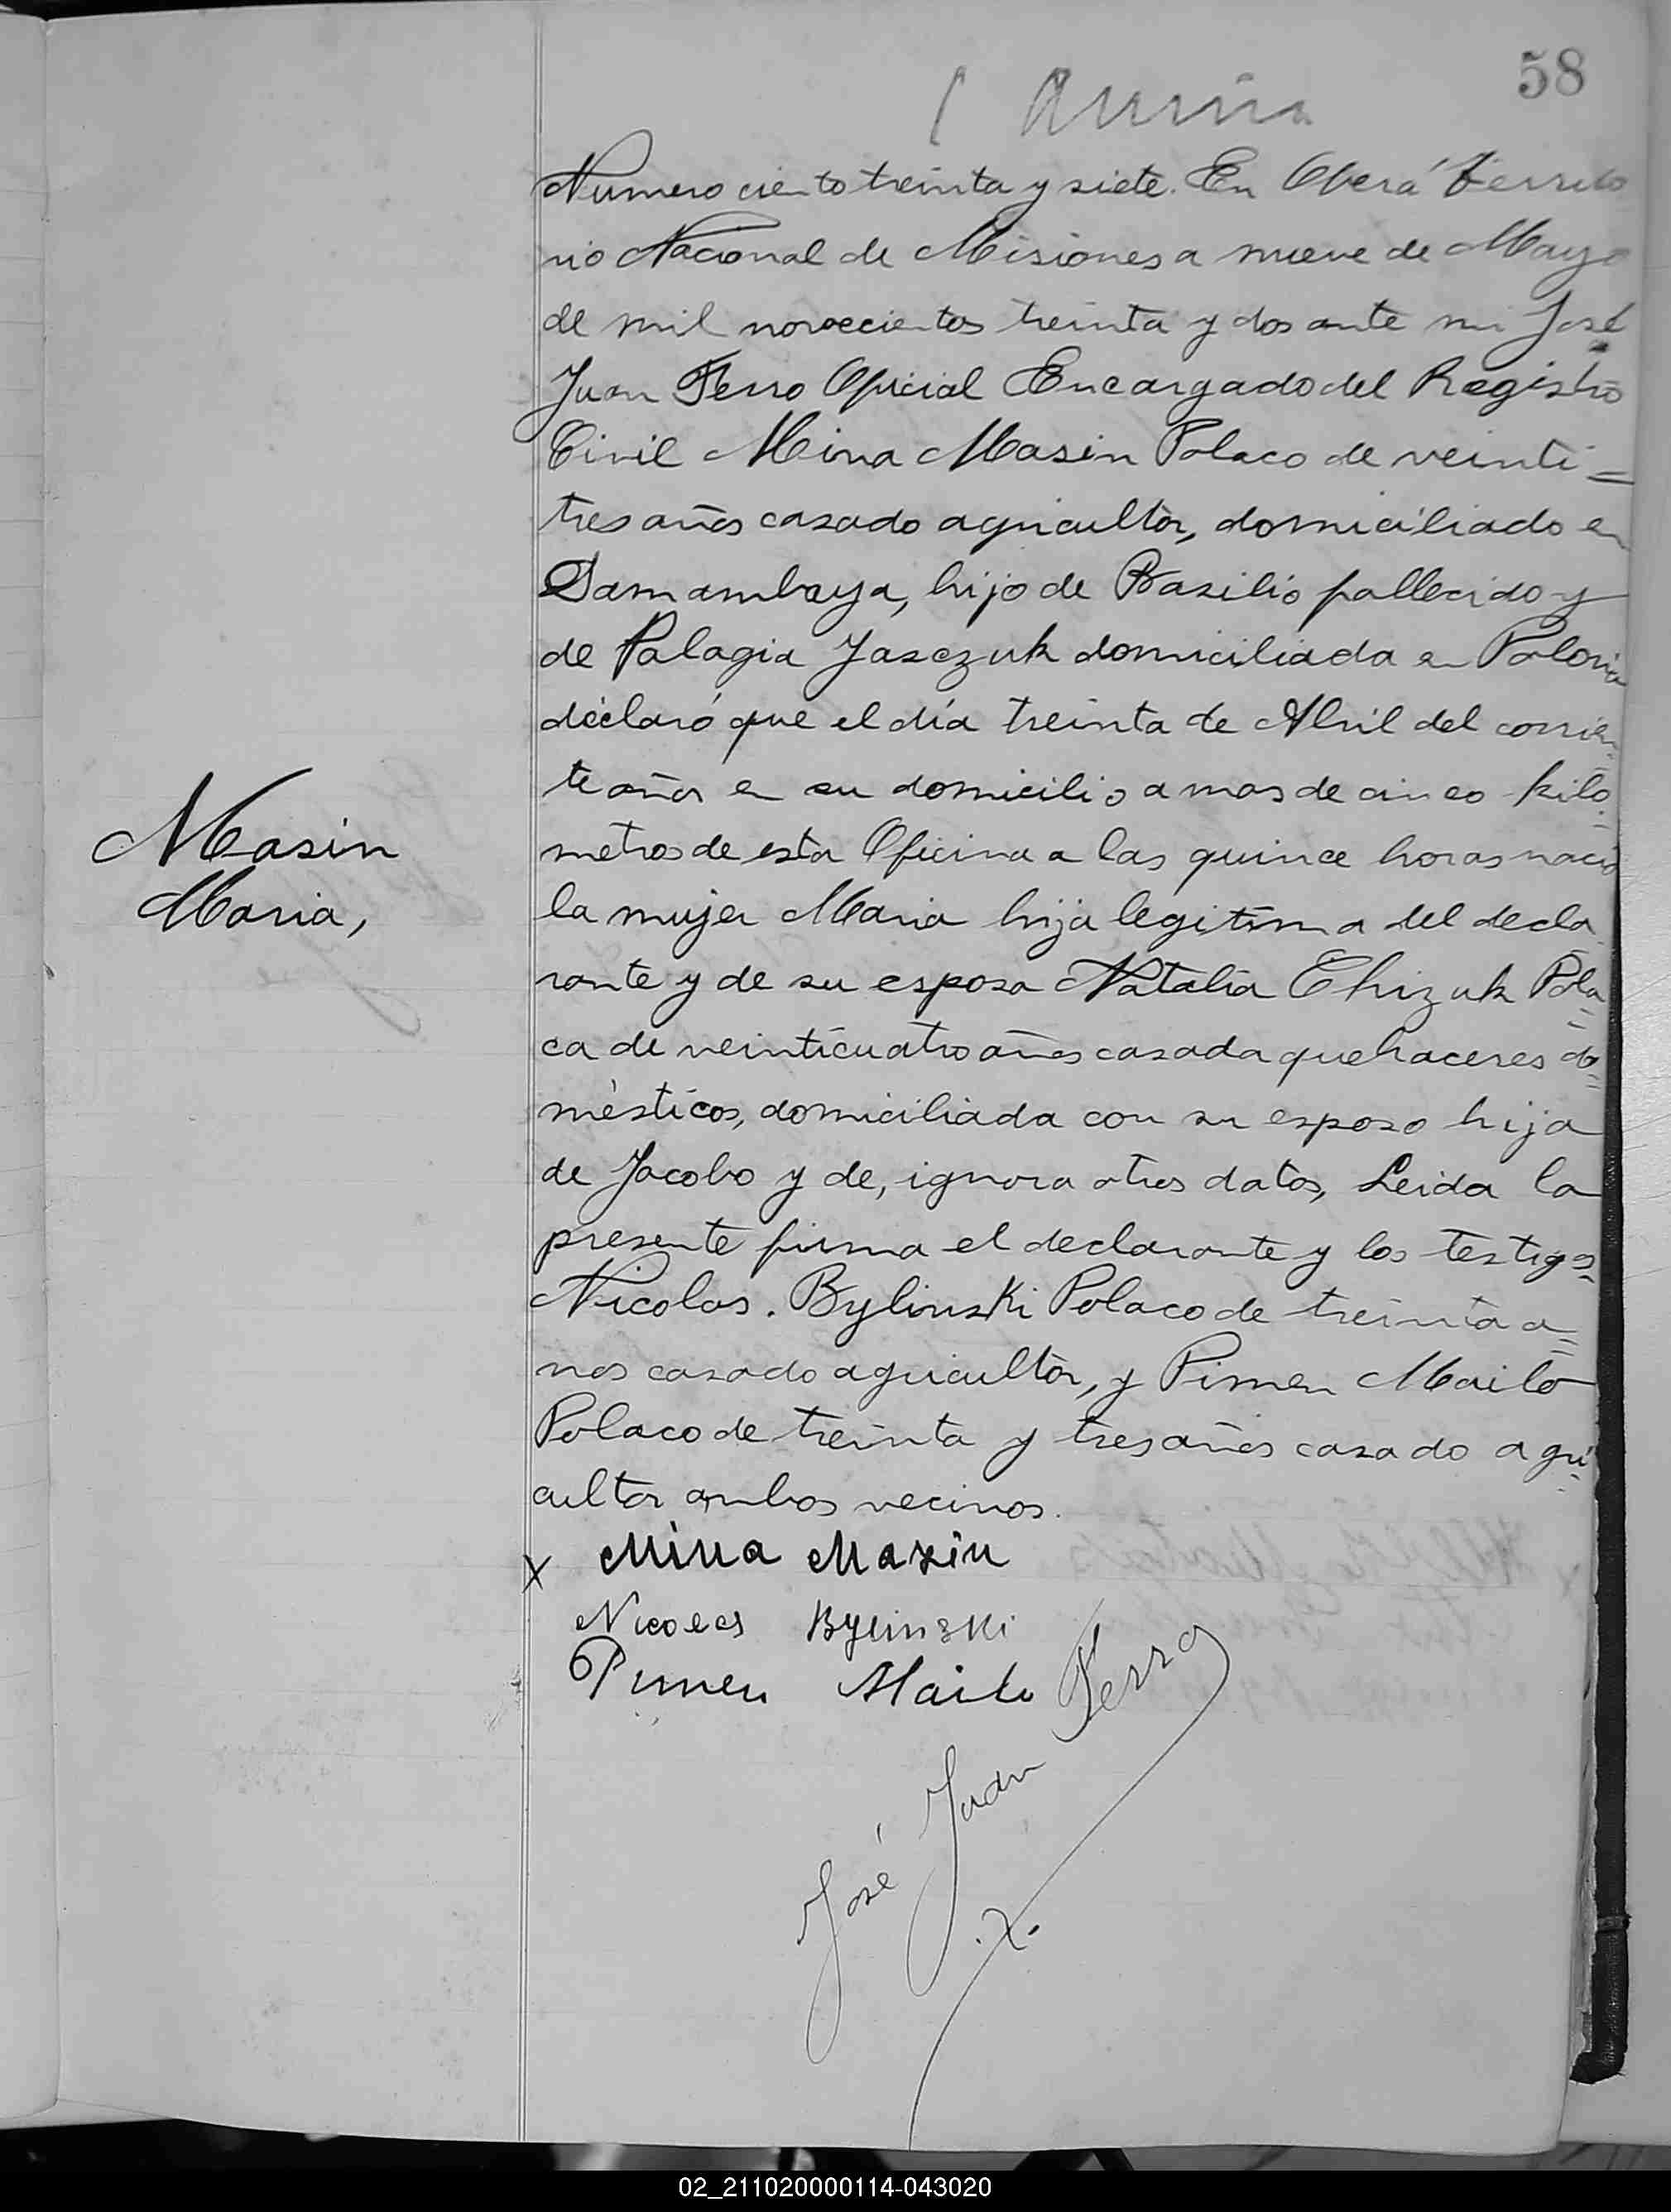 58
Numero ciento treinta y siete. En Oberá Territo
rio Nacional de Misiones a nueve de Mayo
de mil novecientos treinta y dos ante mi José
Juan Ferro Oficial Encargado del Registro
Civil Mina Masin Polaco de veinti=
tres años casado agricultor, domiciliado en
Samambaya, hijo de Basilio fallecido y
de Palagia Jasczuk domiciliada en Polonia
declaró que el día treinta de Abril del corrien=
te años en su domicilio a mas de cinco kilo=
metros de esta Oficina a las quince horas nació
Masin
Maria,
la mujer Maria hija legitima del decla
rante y de su esposa Natalia Chizuk Pola=
ca de veinticuatro años casada quehaceres do=
mésticos, domiciliada con su esposo hija
de Jacobo y de, ignora otros datos, Leida la
presente firma el declarante y los testigos
Nicolas. Bylinski Polaco de treinta a=
nos casado agricultor, y Pimen Mailo
Polaco de treinta y tres años casado agri=
cultor ambos vecinos.
x Mina Masin
Nicolas Bylinski
Pimen Mailo
José Juan Ferro
02_211020000114-043020